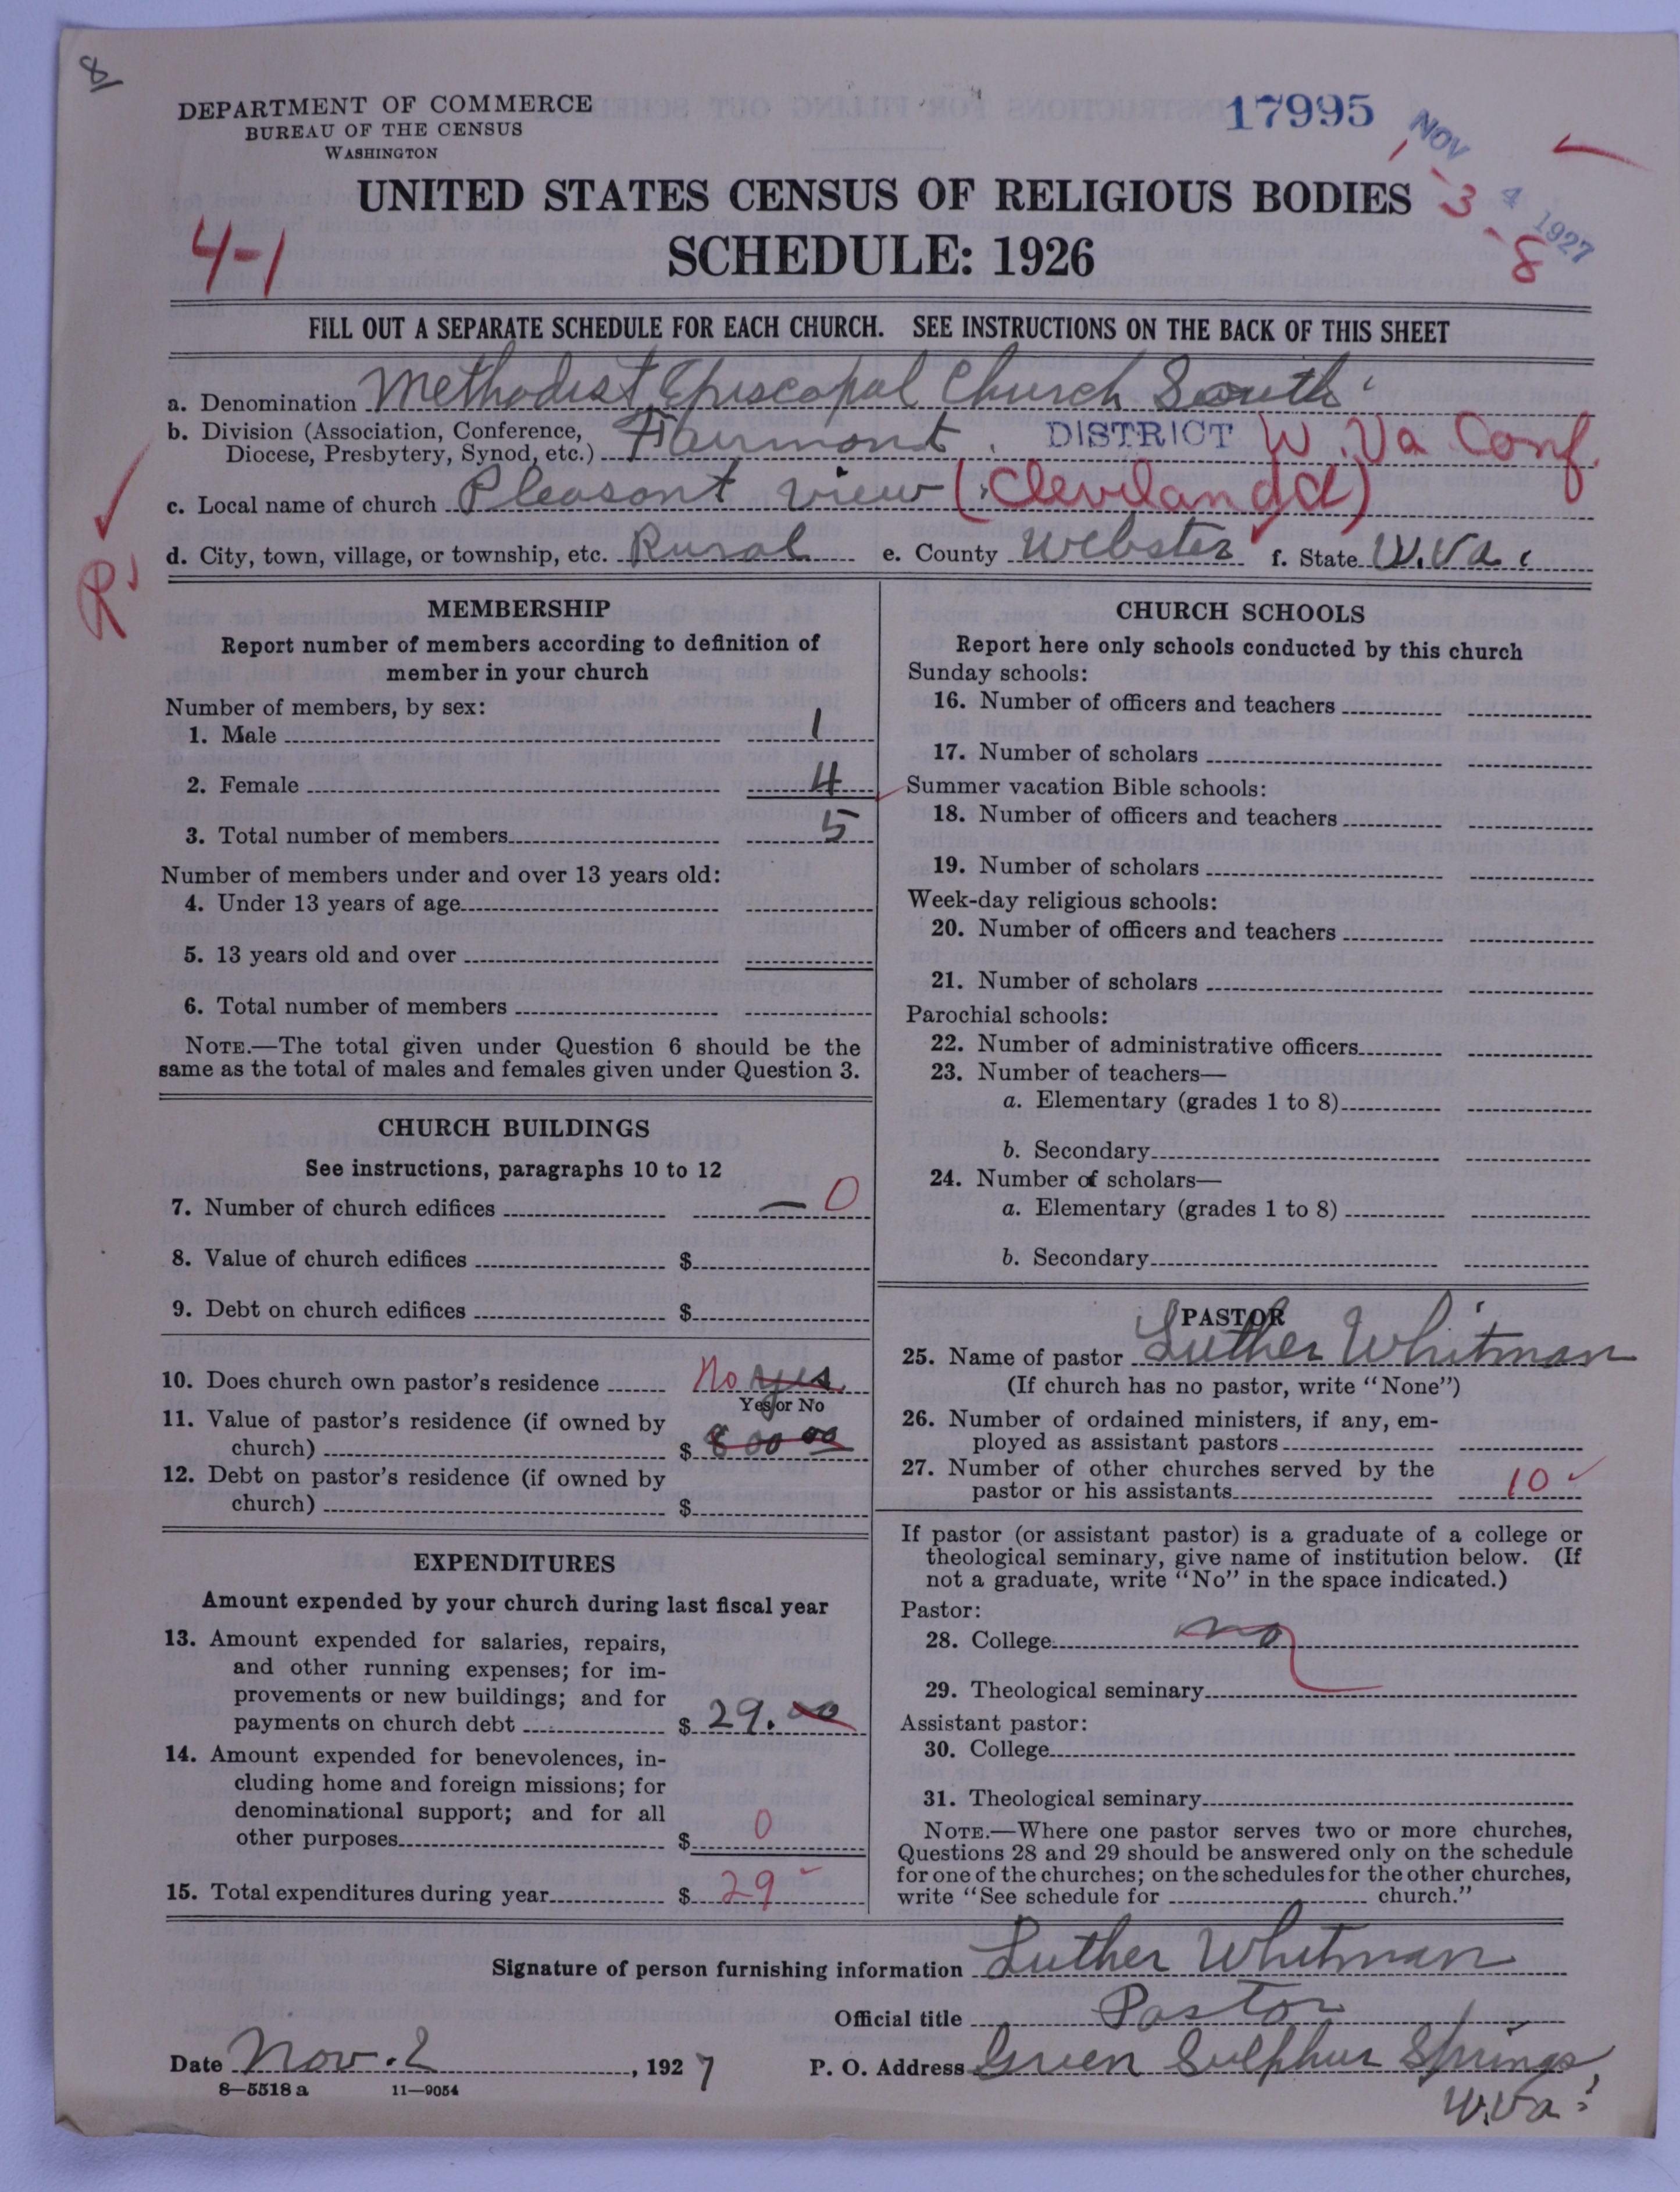 8
DEPARTMENT OF COMMERCE
BUREAU OF THE CENSUS
WASHINGTON
17995
NOV 4 1927
3
8
UNITED STATES CENSUS OF RELIGIOUS BODIES
4-1
SCHEDULE: 1926
FILL OUT A SEPARATE SCHEDULE FOR EACH CHURCH. SEE INSTRUCTIONS ON THE BACK OF THIS SHEET
a. Denomination Methodist Episcopal Church South
b. Division (Association, Conference,
Diocese, Presbytery, Synod, etc.) Fairmont. DISTRICT W. Va Conf.
c. Local name of church Pleasant view
d. City, town, village, or township, etc. Rural e. County Webster f. State W.Va.
R
MEMBERSHIP
Report number of members according to definition of
member in your church
Number of members, by sex:
1. Male 1
2. Female 4
3. Total number of members 5
Number of members under and over 13 years old:
4. Under 13 years of age
5. 13 years old and over
6. Total number of members
NOTE.—The total given under Question 6 should be the
same as the total of males and females given under Question 3.
CHURCH BUILDINGS
See instructions, paragraphs 10 to 12
7. Number of church edifices — 0
8. Value of church edifices $
9. Debt on church edifices $
10. Does church own pastor's residence No yes
Yes or No
11. Value of pastor's residence (if owned by
church) $ 800 00
12. Debt on pastor's residence (if owned by
church) $
EXPENDITURES
Amount expended by your church during last fiscal year
13. Amount expended for salaries, repairs,
and other running expenses; for im-
provements or new buildings; and for
payments on church debt $ 29.00
14. Amount expended for benevolences, in-
cluding home and foreign missions; for
denominational support; and for all
other purposes $ 0
15. Total expenditures during year $ 29
CHURCH SCHOOLS
Report here only schools conducted by this church
Sunday schools:
16. Number of officers and teachers
17. Number of scholars
Summer vacation Bible schools:
18. Number of officers and teachers
19. Number of scholars
Week-day religious schools:
20. Number of officers and teachers
21. Number of scholars
Parochial schools:
22. Number of administrative officers
23. Number of teachers—
a. Elementary (grades 1 to 8)
b. Secondary
24. Number of scholars—
a. Elementary (grades 1 to 8)
b. Secondary
PASTOR
25. Name of pastor Luther Whitman
(If church has no pastor, write "None")
26. Number of ordained ministers, if any, em-
ployed as assistant pastors
27. Number of other churches served by the
pastor or his assistants 10
If pastor (or assistant pastor) is a graduate of a college or
theological seminary, give name of institution below. (If
not a graduate, write "No" in the space indicated.)
Pastor:
28. College no
29. Theological seminary
Assistant pastor:
30. College
31. Theological seminary
NOTE.—Where one pastor serves two or more churches,
Questions 28 and 29 should be answered only on the schedule
for one of the churches; on the schedules for the other churches,
write "See schedule for church."
Signature of person furnishing information Luther Whitman
Official title Pastor
Date Nov. 2, 1927 P. O. Address Green Sulphur Springs
W.Va.
8—5518 a 11—9054